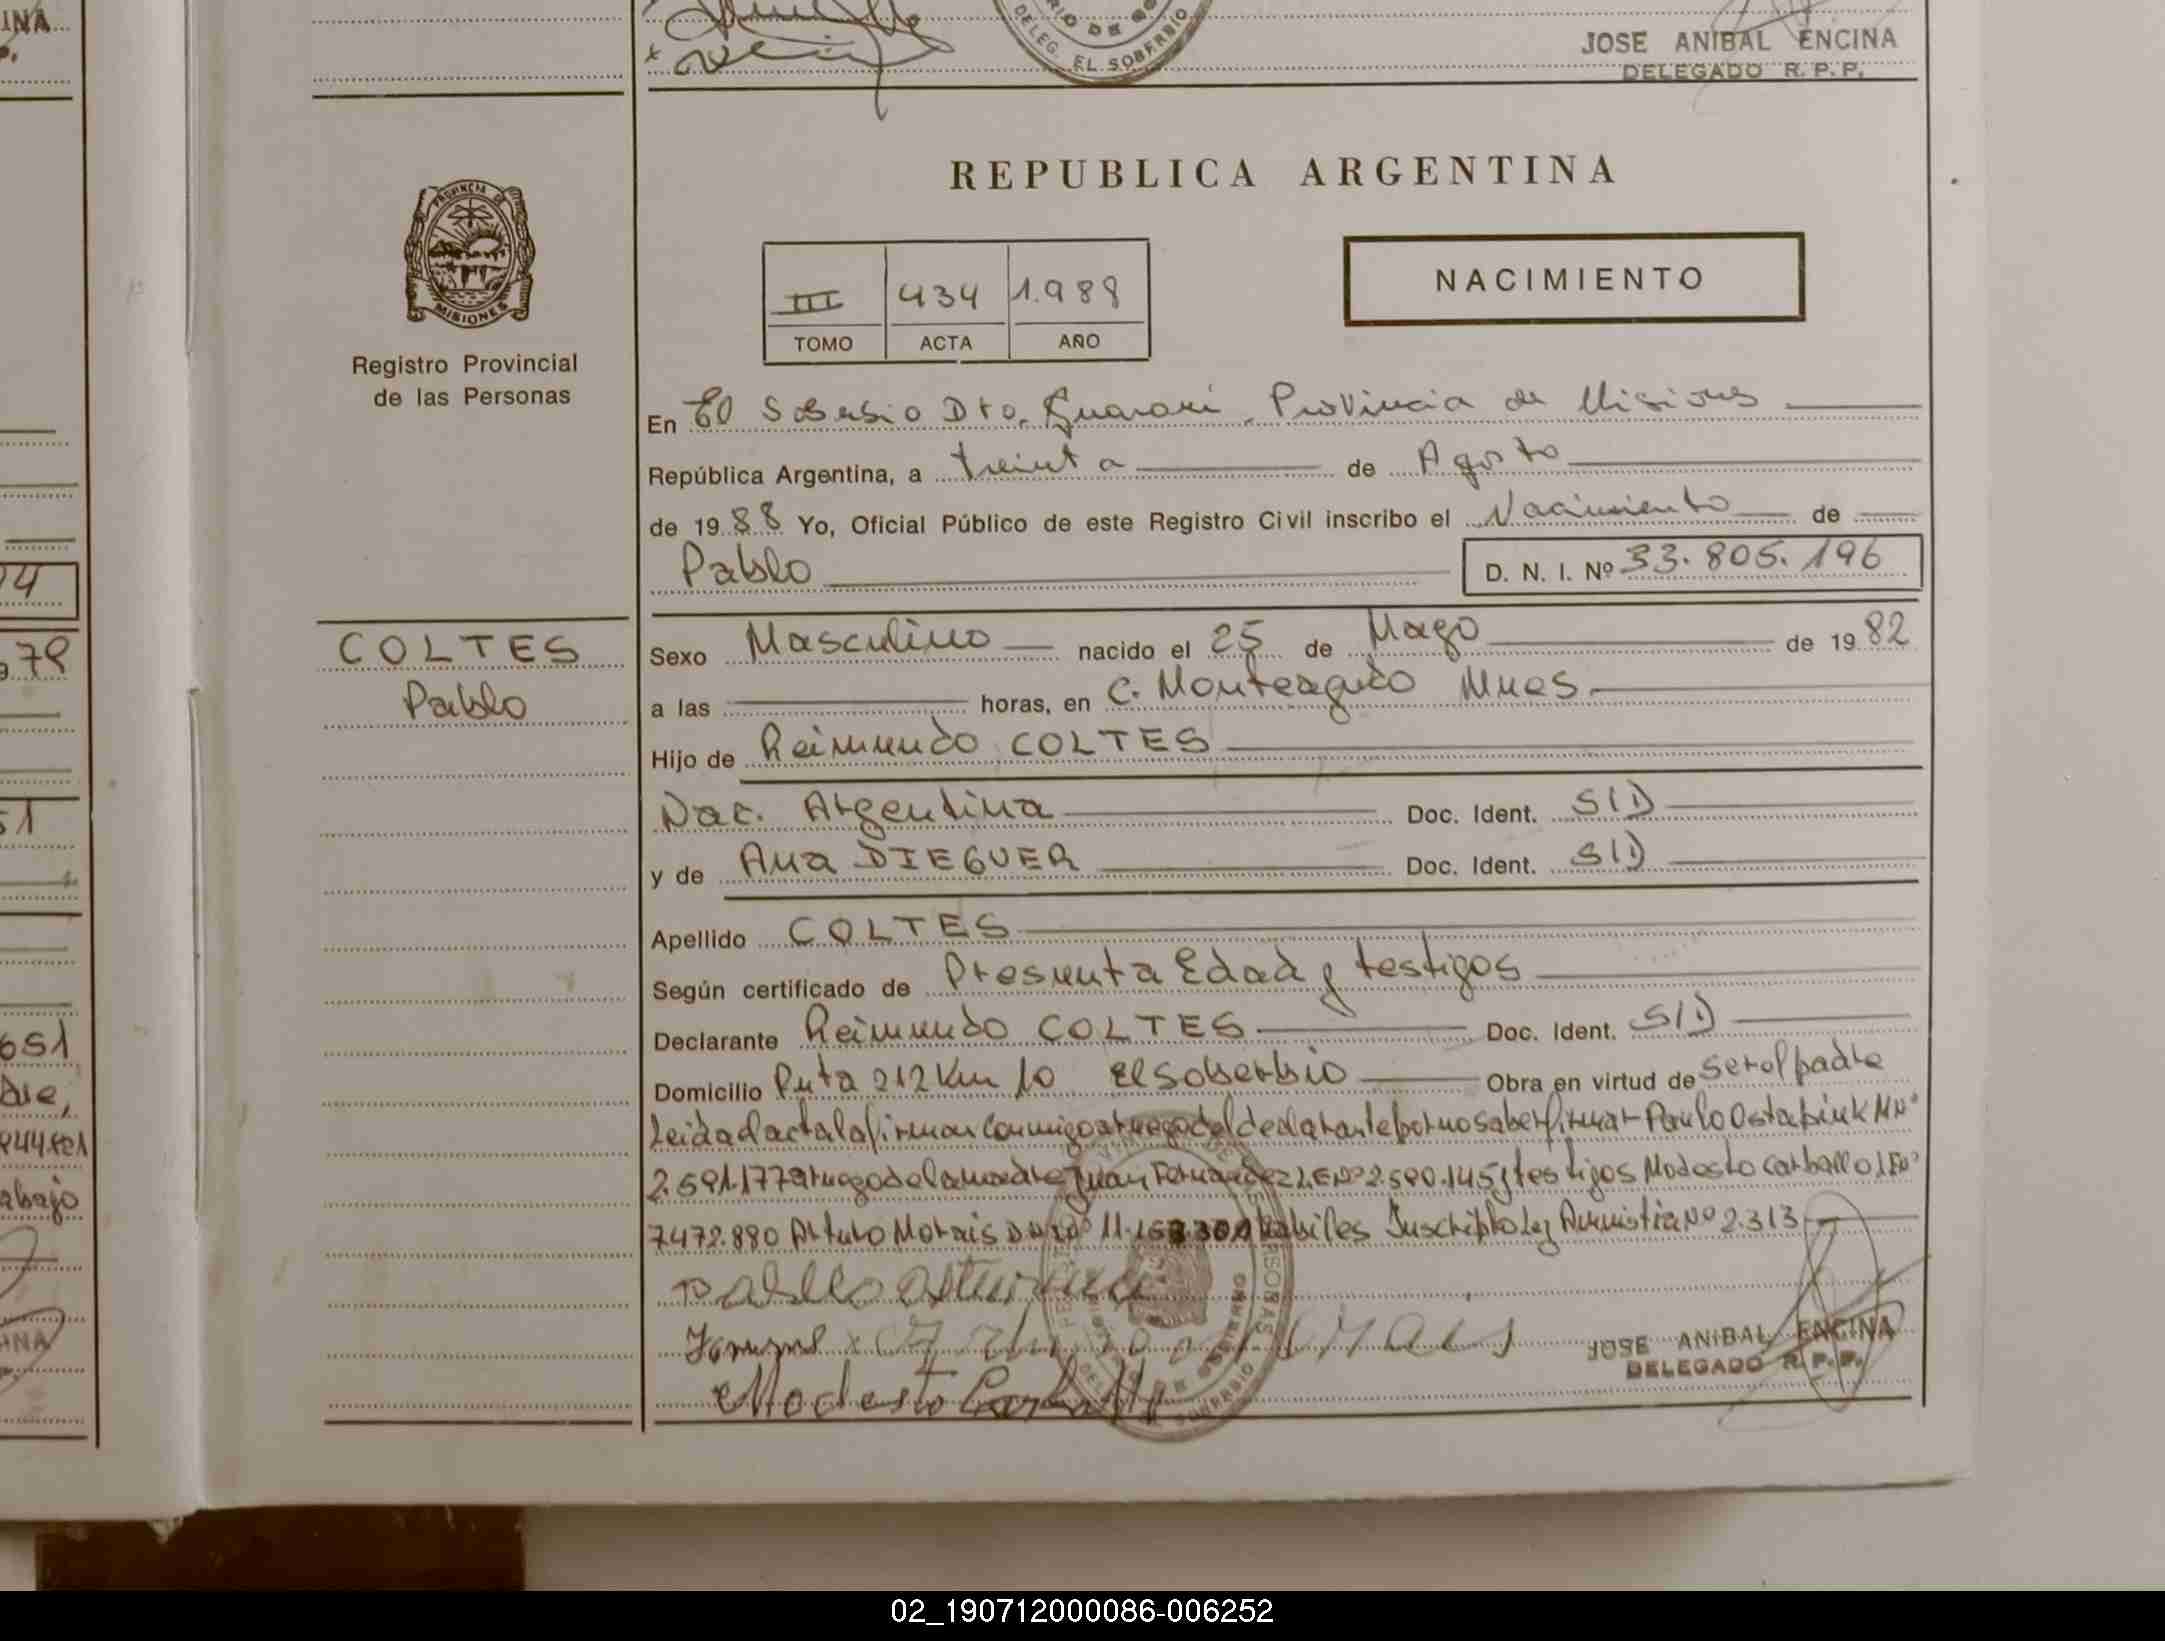 INA
JOSE ANIBAL ENCINA
DELEG. EL SOBERBIO
DELEGADO R.P.P.
REPUBLICA ARGENTINA
PROVINCIA DE MISIONES
NACIMIENTO
III 434 1.988
TOMO ACTA AÑO
Registro Provincial
de las Personas
En El Soberbio Dto. Guarani, Provincia de Misiones
República Argentina, a treinta de Agosto
de 1988 Yo, Oficial Público de este Registro Civil inscribo el Nacimiento de
Pablo D. N. I. Nº 33.805.196
COLTES
Pablo
Sexo Masculino nacido el 25 de Mayo de 1982
a las horas, en C. Monteagudo Mnes
Hijo de Reimundo COLTES
Nac. Argentina Doc. Ident. S/D
y de Ana DIEGUER Doc. Ident. S/D
Apellido COLTES
Según certificado de Presunta Edad y testigos
Declarante Reimundo COLTES Doc. Ident. S/D
Domicilio Ruta 212 Km 10 El Soberbio Obra en virtud de ser el padre
Leida el acta la firman conmigo a ruego del declarante por no saber firmar Paulo
2.591.177 a ruego de la madre Juan Fernandez L.E Nº 2.590.145 y testigos Modesto Carballo L E Nº
7472.880 Arturo Morais habiles Inscripto Ley Amnistia Nº 2.313
Modesto Carballo
JOSE ANIBAL ENCINA
DELEGADO R.P.P.
02_190712000086-006252